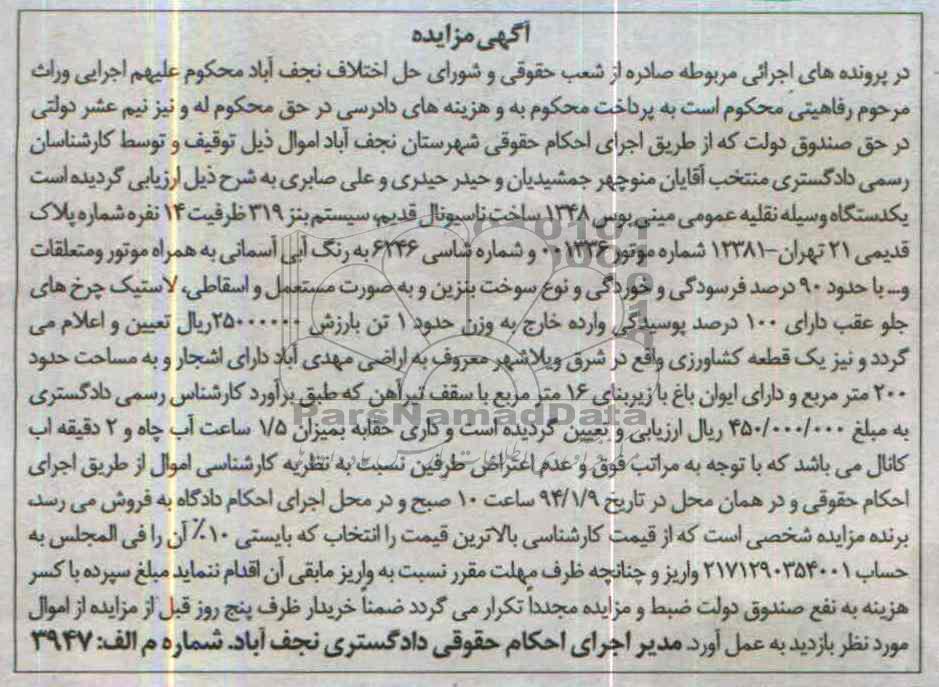 آگهی مزایده
در پرونده های اجرائی مربوطه صادره از شعب حقوقی و شورای حل اختلاف نجف آباد محکوم علیهم اجرایی وراث
مرحوم رفاهیتی محکوم است به پرداخت محکوم به و هزینه های دادرسی در حق محکوم له و نیز نیم عشر دولتی
در حق صندوق دولت که از طریق اجرای احکام حقوقی شهرستان نجف آباد اموال ذیل توقیف و توسط کارشناسان
رسمی دادگستری منتخب آقایان منوچهر جمشیدیان و حیدر حیدری و علی صابری به شرح ذیل ارزیابی گردیده است
یکدستگاه وسیله نقلیه عمومی مینی بوس ۱۳۴۸ ساخت ناسیونال قدیم، سیستم بنز ۳۱۹ ظرفیت ۱۴ نفره شماره پلاک
قدیمی ۲۱ تهران-۱۲۳۸۱ شماره موتور ۰۰۱۳۳۶ و شماره شاسی ۶۲۴۶ به رنگ آبی آسمانی به همراه موتور ومتعلقات
و... با حدود ۹۰ درصد فرسودگی و خوردگی و نوع سوخت بنزین و به صورت مستعمل و اسقاطی، لاستیک چرخ های
جلو عقب دارای ۱۰۰ درصد پوسیدگی وارده خارج به وزن حدود ۱ تن بارزش ۲۵۰۰۰۰۰۰ریال تعیین و اعلام می
گردد و نیز یک قطعه کشاورزی واقع در شرق ویلاشهر معروف به اراضی مهدی آباد دارای اشجار و به مساحت حدود
۲۰۰ متر مربع و دارای ایوان باغ با زیربنای ۱۶ متر مربع با سقف تیرآهن که طبق برآورد کارشناس رسمی دادگستری
به مبلغ ۴۵۰/۰۰۰/۰۰۰ ریال ارزیابی و تعیین گردیده است و داری حقابه بمیزان ۱/۵ ساعت آب چاه و ۲ دقیقه اب
کانال می باشد که با توجه به مراتب فوق و عدم اعتراض طرفین نسبت به نظریه کارشناسی اموال از طریق اجرای
احکام حقوقی و در همان محل در تاریخ ۹۴/۱/۹ ساعت ۱۰ صبح و در محل اجرای احکام دادگاه به فروش می رسد،
برنده مزایده شخصی است که از قیمت کارشناسی بالاترین قیمت را انتخاب که بایستی ۱۰٪ آن را فی المجلس به
حساب ۲۱۷۱۲۹۰۳۵۴۰۰۱ واریز و چنانچه ظرف مهلت مقرر نسبت به واریز مابقی آن اقدام ننماید مبلغ سپرده با کسر
هزینه به نفع صندوق دولت ضبط و مزایده مجدداً تکرار می گردد ضمناً خریدار ظرف پنج روز قبل از مزایده از اموال
مورد نظر بازدید به عمل آورد. مدیر اجرای احکام حقوقی دادگستری نجف آباد. شماره م الف: ۳۹۴۷
ParsNamadData